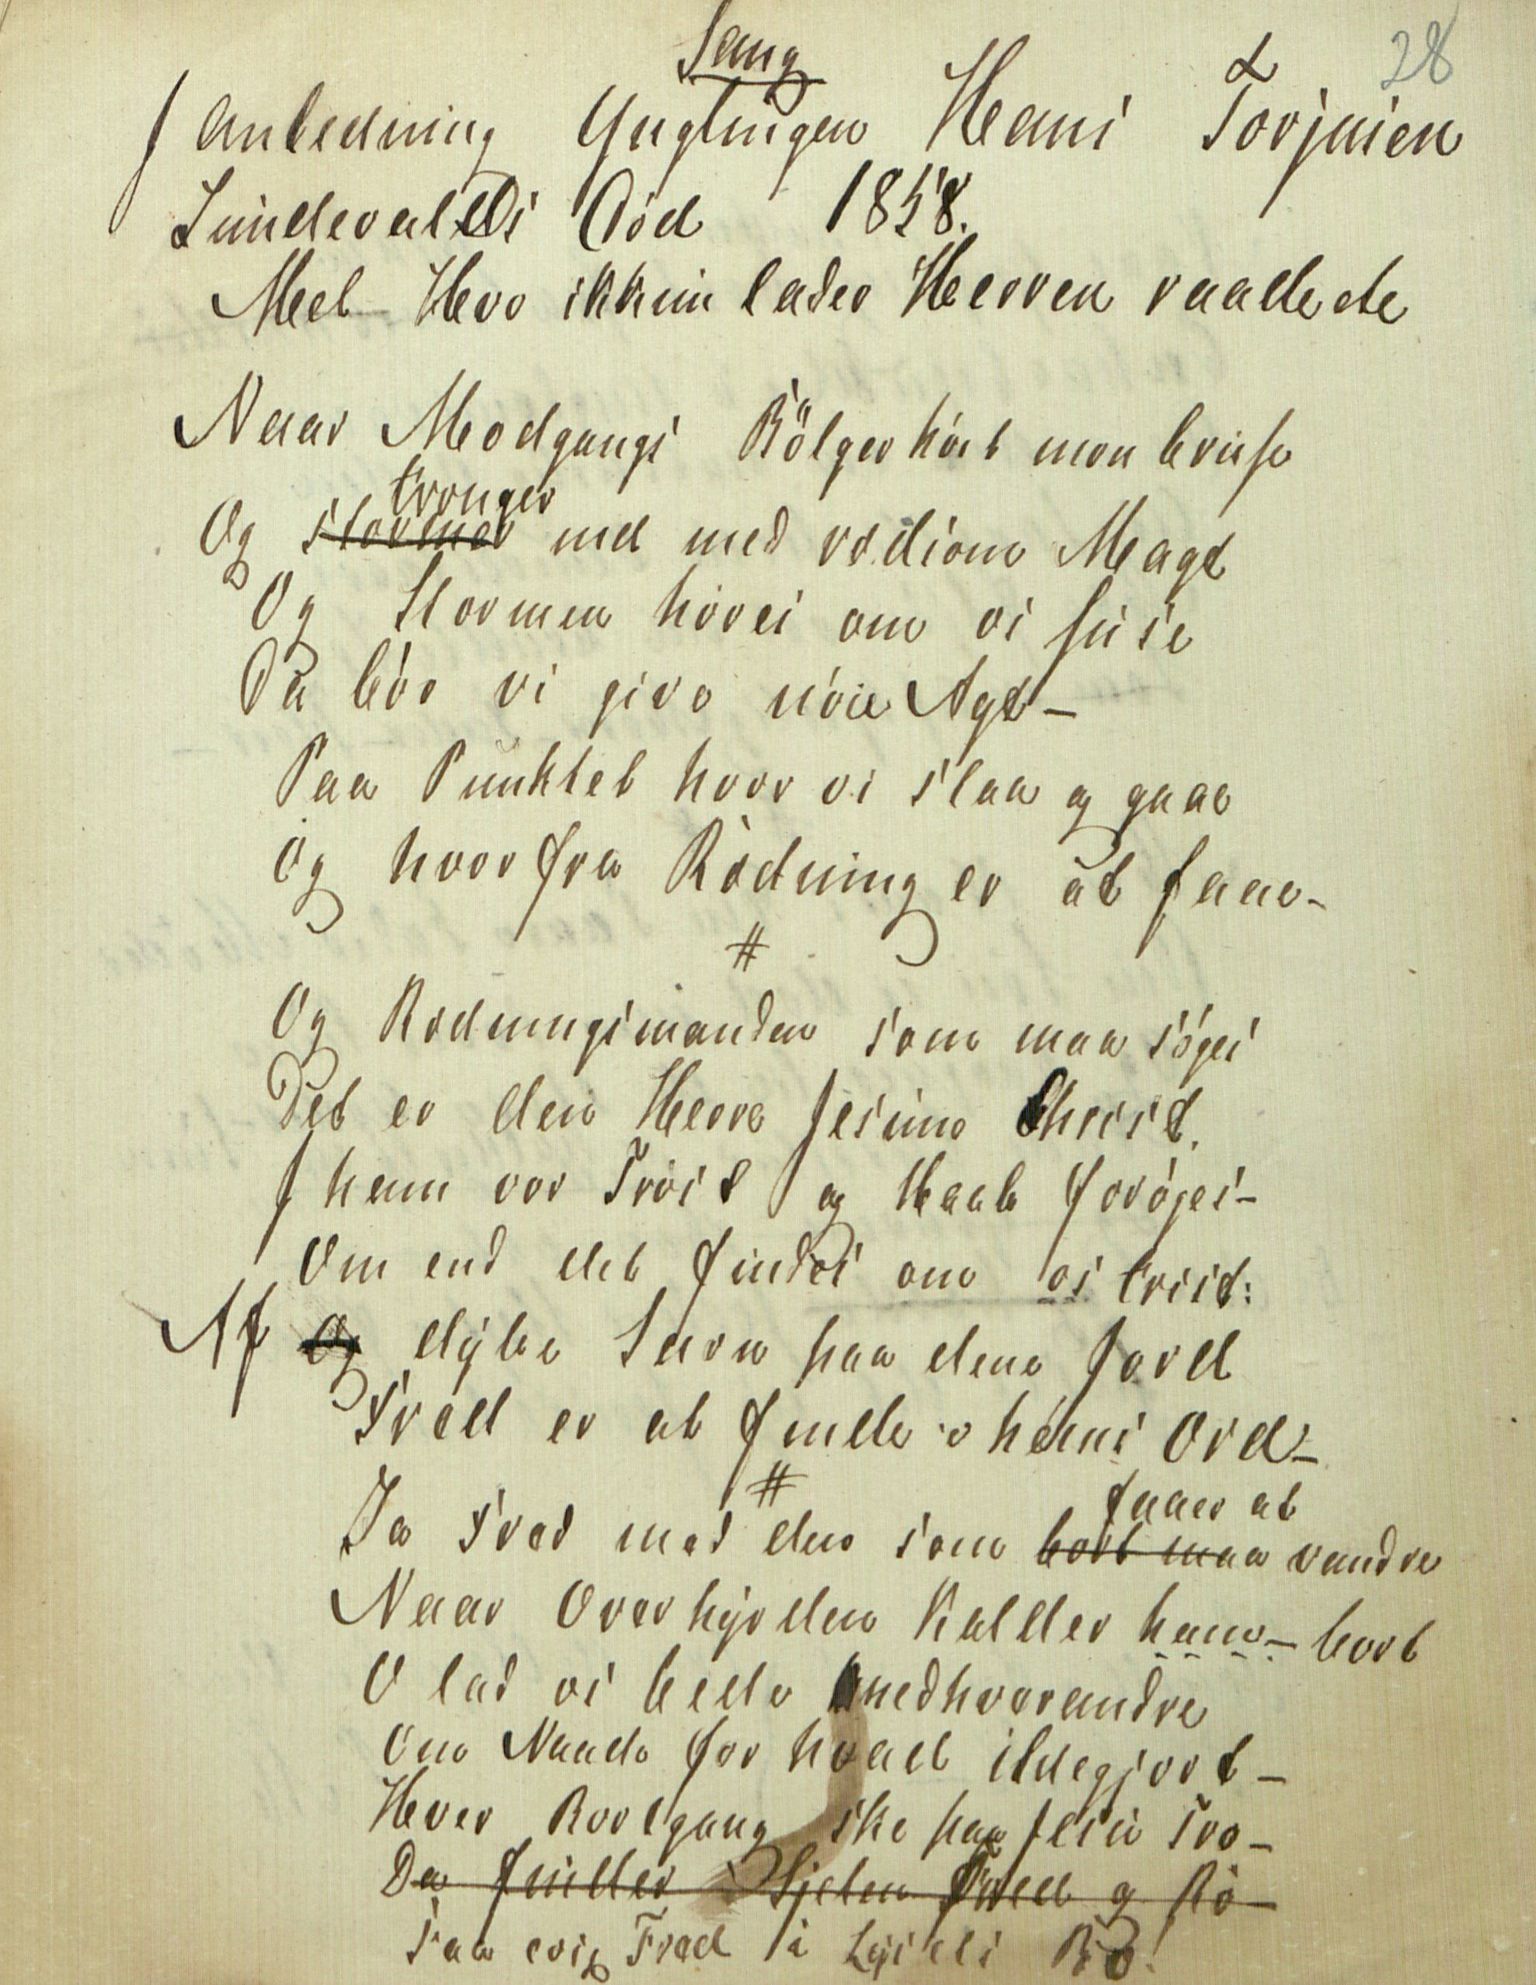 28
Sang
I Anledning Ynglingen Hans Torjusen
Lundevolds Död 1858.
Mel Hvo ikkun lader Herren raade etc
Naar Modgangs Bölger höit mon bruse
tronger
Og stormer ind med voldsom Magt
Og Stormen höres om os suse
Da bör vi give nöie Agt –
Paa Punktet hvor vi staa og gaae
Og hvorfra Redning er at faae –
#
Og Redningsmanden som maa söges
Det er den Herre Jesum Christ.
I ham vor Tröst og Haab foröges –
Om end det findes om os trist:
Af Og dybe Savn paa denne Jord
Fred er at finde i hans Ord –
#
faaer at
Ja Fred med den som bort maa vandre
Naar Overhyrden kalder ham – bort
O lad os bede med hverandre
Om Naade for hvad ilde gjort –
Hver Bortgang ske paa Jesu Tro –
Da finder Sjelen Fred og Ro –
Faa evig Fred i Lysets Bo!